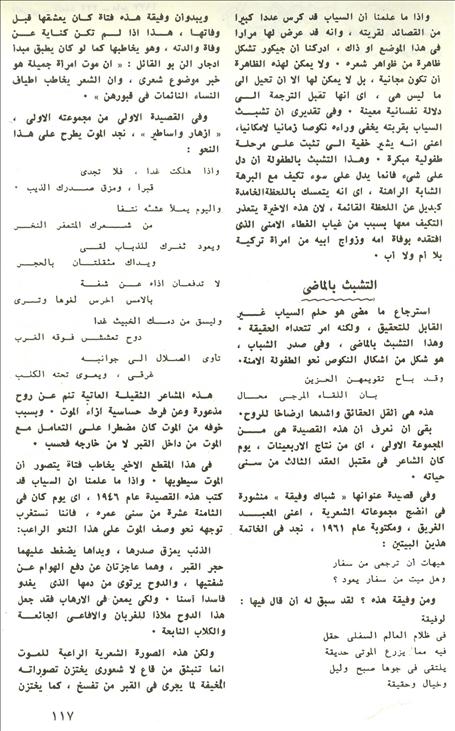 واذا ما علمنا أن السياب قد كرس عددا كبيرا
من القصائد لقريته ، وانه قد عرض لها مرارا
في هذا الموضع او ذاك ، ادركنا أن جيكور تشكل
ظاهرة من ظواهر شعره • ولا يمكن لهذه الظاهرة
أن تكون مجانية ، بل لا يمكن لها الا ان تحيل الى
ما ليس هي ، اى انها تقبل الترجمة الى
دلالة نفسانية معينة • وفي تقديرى أن تشبث
السياب بقريته يخفي وراءه نكوصا زمانيا لامكانيا،
اعنى انه يشير خفية الى تثبت على مرحلة
طفولية مبكرة • وهذا التشبث بالطفولة ان دل
على شىء فانما يدل على سوء تكيف مع البرهة
الشابة الراهنة ، اى انه يتمسك باللحظةالخامدة
كبديل عن اللحظة القائمة ، لان هذه الاخيرة يتعذر
التكيف معها بسبب من غياب الغطاء الامنى الذى
افتقده بوفاة امه وزواج ابيه من امرأة تركية
بلا أم ولا أب •
التشبث بالماضى
استرجاع ما مضى هو حلم السياب غير
القابل للتحقيق ، ولكنه امر تتعداه الحقيقة •
وهذا التشبث بالماضى ، وفى صدر الشباب ،
هو شكل من اشكال النكوص نحو الطفولة الامنة•
وقد باح تقويمهن الحزين
بان اللقاء المرجى محال
هذه هى أثقل الحقائق واشدها ارضاخا للروح•
بقى أن نعرف أن هذه القصيدة هى من
المجموعة الاولى ، اى من نتاج الاربعينات ، يوم
كان الشاعر فى مقتبل العقد الثالث من سنى
حياته •
وفى قصيدة عنوانها « شباك وفيقة » منشورة
فى انضج مجموعاته الشعرية ، اعنى المعبد
الغريق ، ومكتوبة عام ١٩٦١ ، نجد فى الخاتمة
هذين البيتين :
هيهات أن ترجعى من سفار
وهل ميت من سفار يعود ؟
ومن وفيقة هذه ؟ لقد سبق له أن قال فيها :
لوفيقة
فى ظلام العالم السفلى حقل
فيه مما يزرع الموتى حديقة
يلتقى فى جوها صبح وليل
وخيال وحقيقة
ويبدوأن وفيقة هذه فتاة كان يعشقها قبل
وفاتها ، هذا اذا لم تكن كناية عن
وفاة والدته ، وهو يخاطبها كما لو كان يطبق مبدأ
ادجار الن بو القائل : « ان موت امرأة جميلة هو
خير موضوع شعرى ، وان الشعر يخاطب اطياف
النساء النائمات فى قبورهن » •
وفى القصيدة الاولى من مجموعته الاولى ،
« ازهار واساطير » ، نجد الموت يطرح على هذا
النحو :
واذا هلكت غدا ، فلا تجدى
قبرا ، ومزق صدرك الذيب •
واليوم يملأ عشه نتفا
من شعرك المتعفر النخر
ويعود ثغرك للذباب لقى
ويداك مثقلتان بالحجر
لا تدفعان اذاه عن شفة
بالامس اخرس لغوها وترى
وليسق من دمك الخبيث غدا
دوح تعشش فوقه الغرب
تأوى الصلال الى جوانبه
غرقى ، ويعوى تحته الكلب
هذه المشاعر الثقيلة العاتية تنم عن روح
مذعورة وعن فرط حساسية ازاء الموت • وبسبب
خوفه من الموت كان مضطرا على التعامل مع
الموت من داخل القبر لا من خارجه فحسب •
فى هذا المقطع الاخير يخاطب فتاة يتصور أن
الموت سيطويها • واذا ما علمنا ان السياب قد
كتب هذه القصيدة عام ١٩٤٦ ، اى يوم كان فى
الثامنة عشرة من سنى عمره ، فاننا نستغرب
توجهه نحو وصف الموت على هذا النحو الراعب:
الذئب يمزق صدرها ، ويداها يضغط عليهما
حجر القبر ، وهما عاجزتان عن دفع الهوام عن
شفتيها ، والدوح يرتوى من دمها الذى يغدو
فاسدا أسنا • ولكى يمعن فى الارهاب فقد جعل
هذا الدوح ملاذا للغربان والافاعى الجائعة
والكلاب النابعة •
ولكن هذه الصورة الشعرية الراعبة للموت
انما تنبثق من قاع لا شعورى يختزن تصوراته
المخيفة لما يجرى فى القبر من تفسخ ، كما يختزن
١١٧